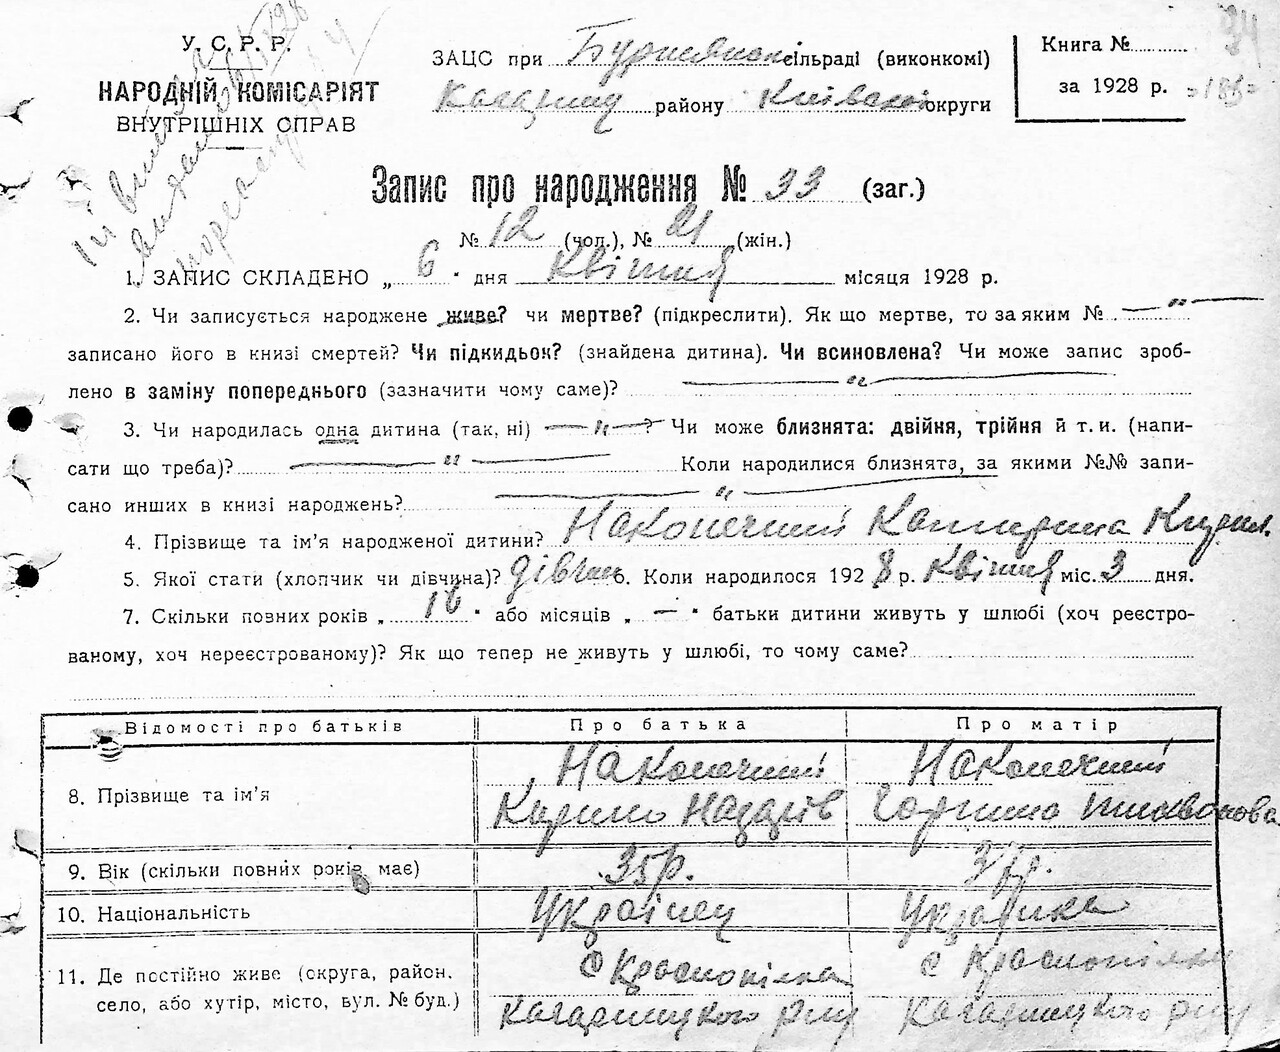 У. С. Р. Р.
НАРОДНІЙ КОМІСАРІЯТ
ВНУТРІШНІХ СПРАВ
ЗАЦС при сільраді (виконкомі)
району Київської округи
Книга №
за 1928 р.
Запис про народження № 33 (заг.)
№ 12 (чол.), № 21 (жін.)
1. ЗАПИС СКЛАДЕНО „ 6 " дня Квітня місяця 1928 р.
2. Чи записується народжене живе? чи мертве? (підкреслити). Як що мертве, то за яким № — " —
записано його в книзі смертей? Чи підкидьок? (знайдена дитина). Чи всиновлена? Чи може запис зроб-
лено в заміну попереднього (зазначити чому саме)? — " —
3. Чи народилась одна дитина (так, ні) — " — ? Чи може близнята: двійня, трійня й т. и. (напи-
сати що треба)? — " — Коли народилися близнята, за якими №№ запи-
сано инших в книзі народжень? — " —
4. Прізвище та ім'я народженої дитини? Наконечний Катирина Кирил.
5. Якої стати (хлопчик чи дівчина)? дівчин 6. Коли народилося 1928 р. Квітня міс. 3 дня.
7. Скільки повних років „ 16 " або місяців „ — " батьки дитини живуть у шлюбі (хоч реєстро-
ваному, хоч нереєстрованому)? Як що тепер не живуть у шлюбі, то чому саме?
Відомості про батьків Про батька Про матір
8. Прізвище та ім'я Наконечний Наконечний
Кирило Назарів
9. Вік (скільки повних років має) 35р.
10. Національність Українец Українка
11. Де постійно живе (округа, район, с Краснопілка с Краснопілки
село, або хутір, місто, вул. № буд.) Кагарлицкого р-ну Кагарлицкого р-ну